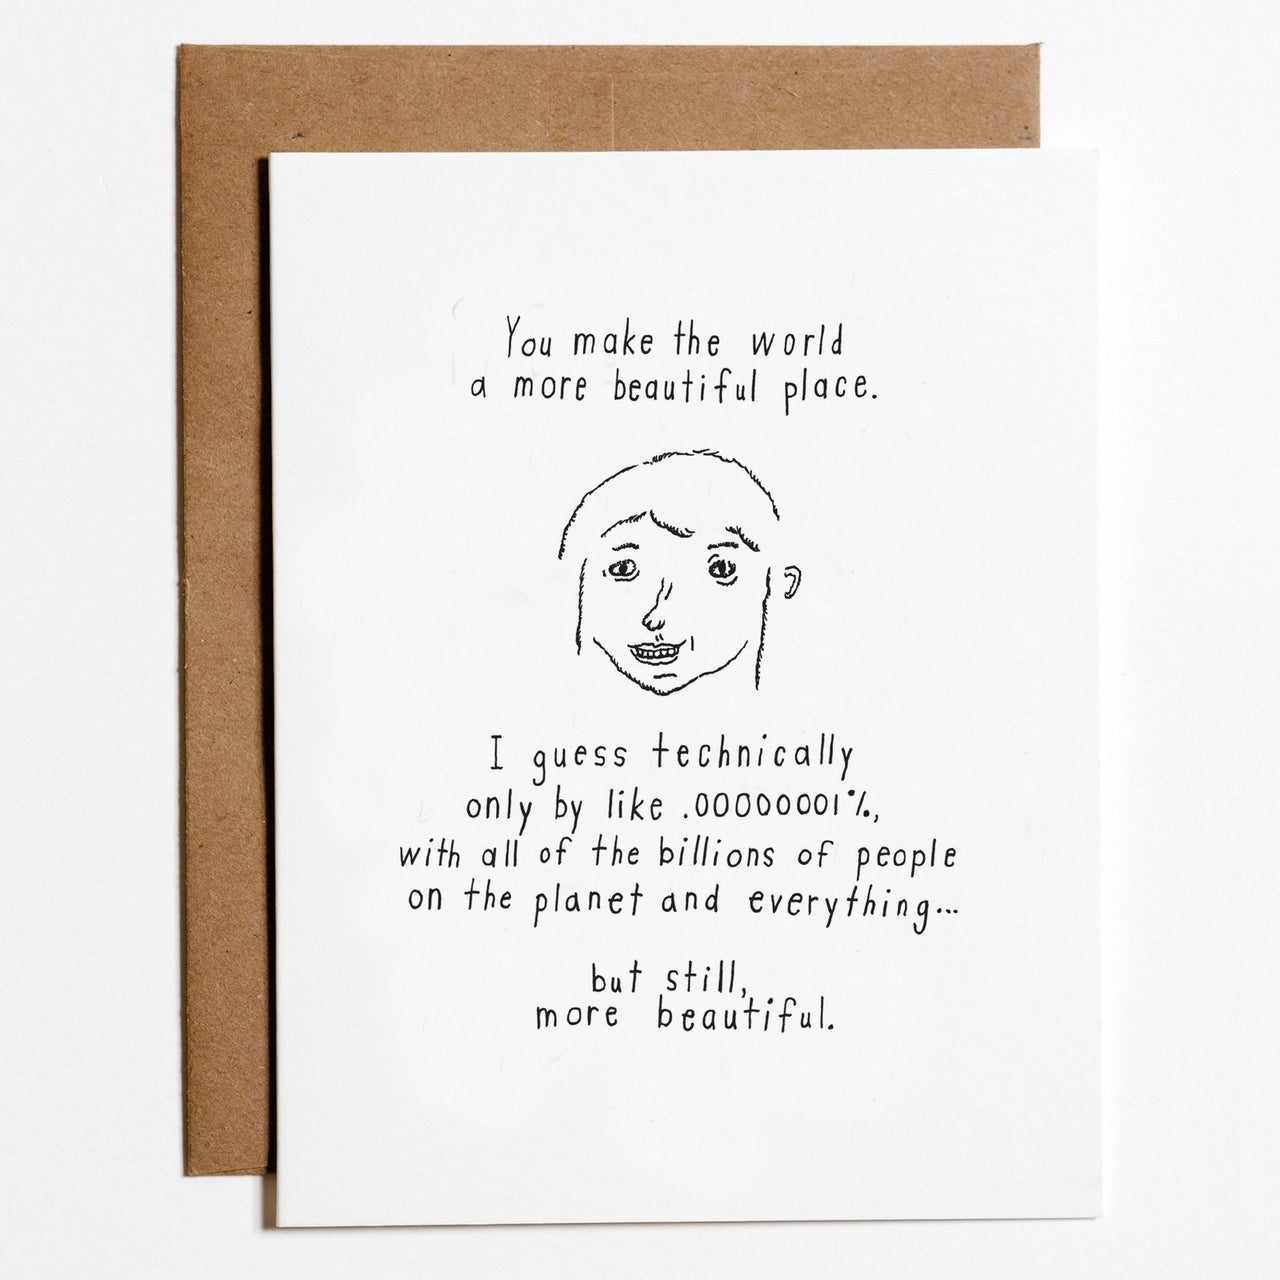 You make the world
a more beautiful place.
I guess technically
only by like .00000001%,
with all of the billions of people
on the planet and everything...
but still,
more beautiful.